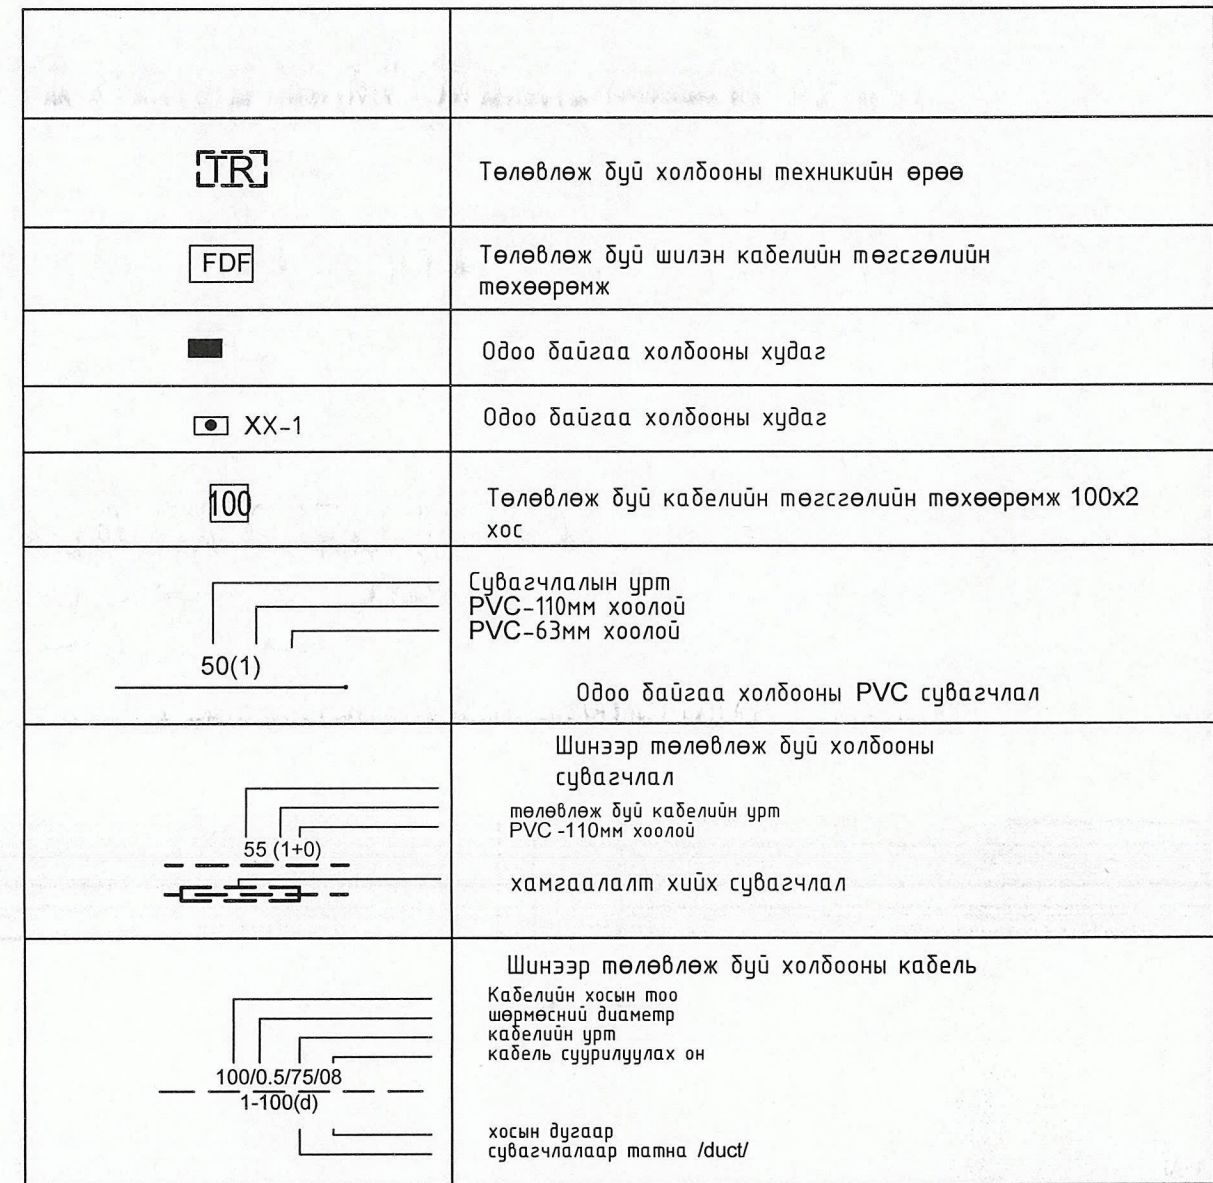 TR
Төлөвлөж буй холбооны техникийн өрөө
FDF
Төлөвлөж буй шилэн кабелийн төгсгөлийн
төхөөрөмж
Одоо байгаа холбооны худаг
XX-1
Одоо байгаа холбооны худаг
100
Төлөвлөж буй кабелийн төгсгөлийн төхөөрөмж 100x2
хос
Сувагчлалын урт
PVC-110мм хоолой
PVC-63мм хоолой
50(1)
Одоо байгаа холбооны PVC сувагчлал
Шинээр төлөвлөж буй холбооны
сувагчлал
төлөвлөж буй кабелийн урт
PVC -110мм хоолой
55 (1+0)
хамгаалалт хийх сувагчлал
Шинээр төлөвлөж буй холбооны кабель
Кабелийн хосын тоо
шөрмөсний диаметр
кабелийн урт
кабель суурилуулах он
100/0.5/75/08
1-100(d)
хосын дугаар
сувагчлалаар татна /duct/